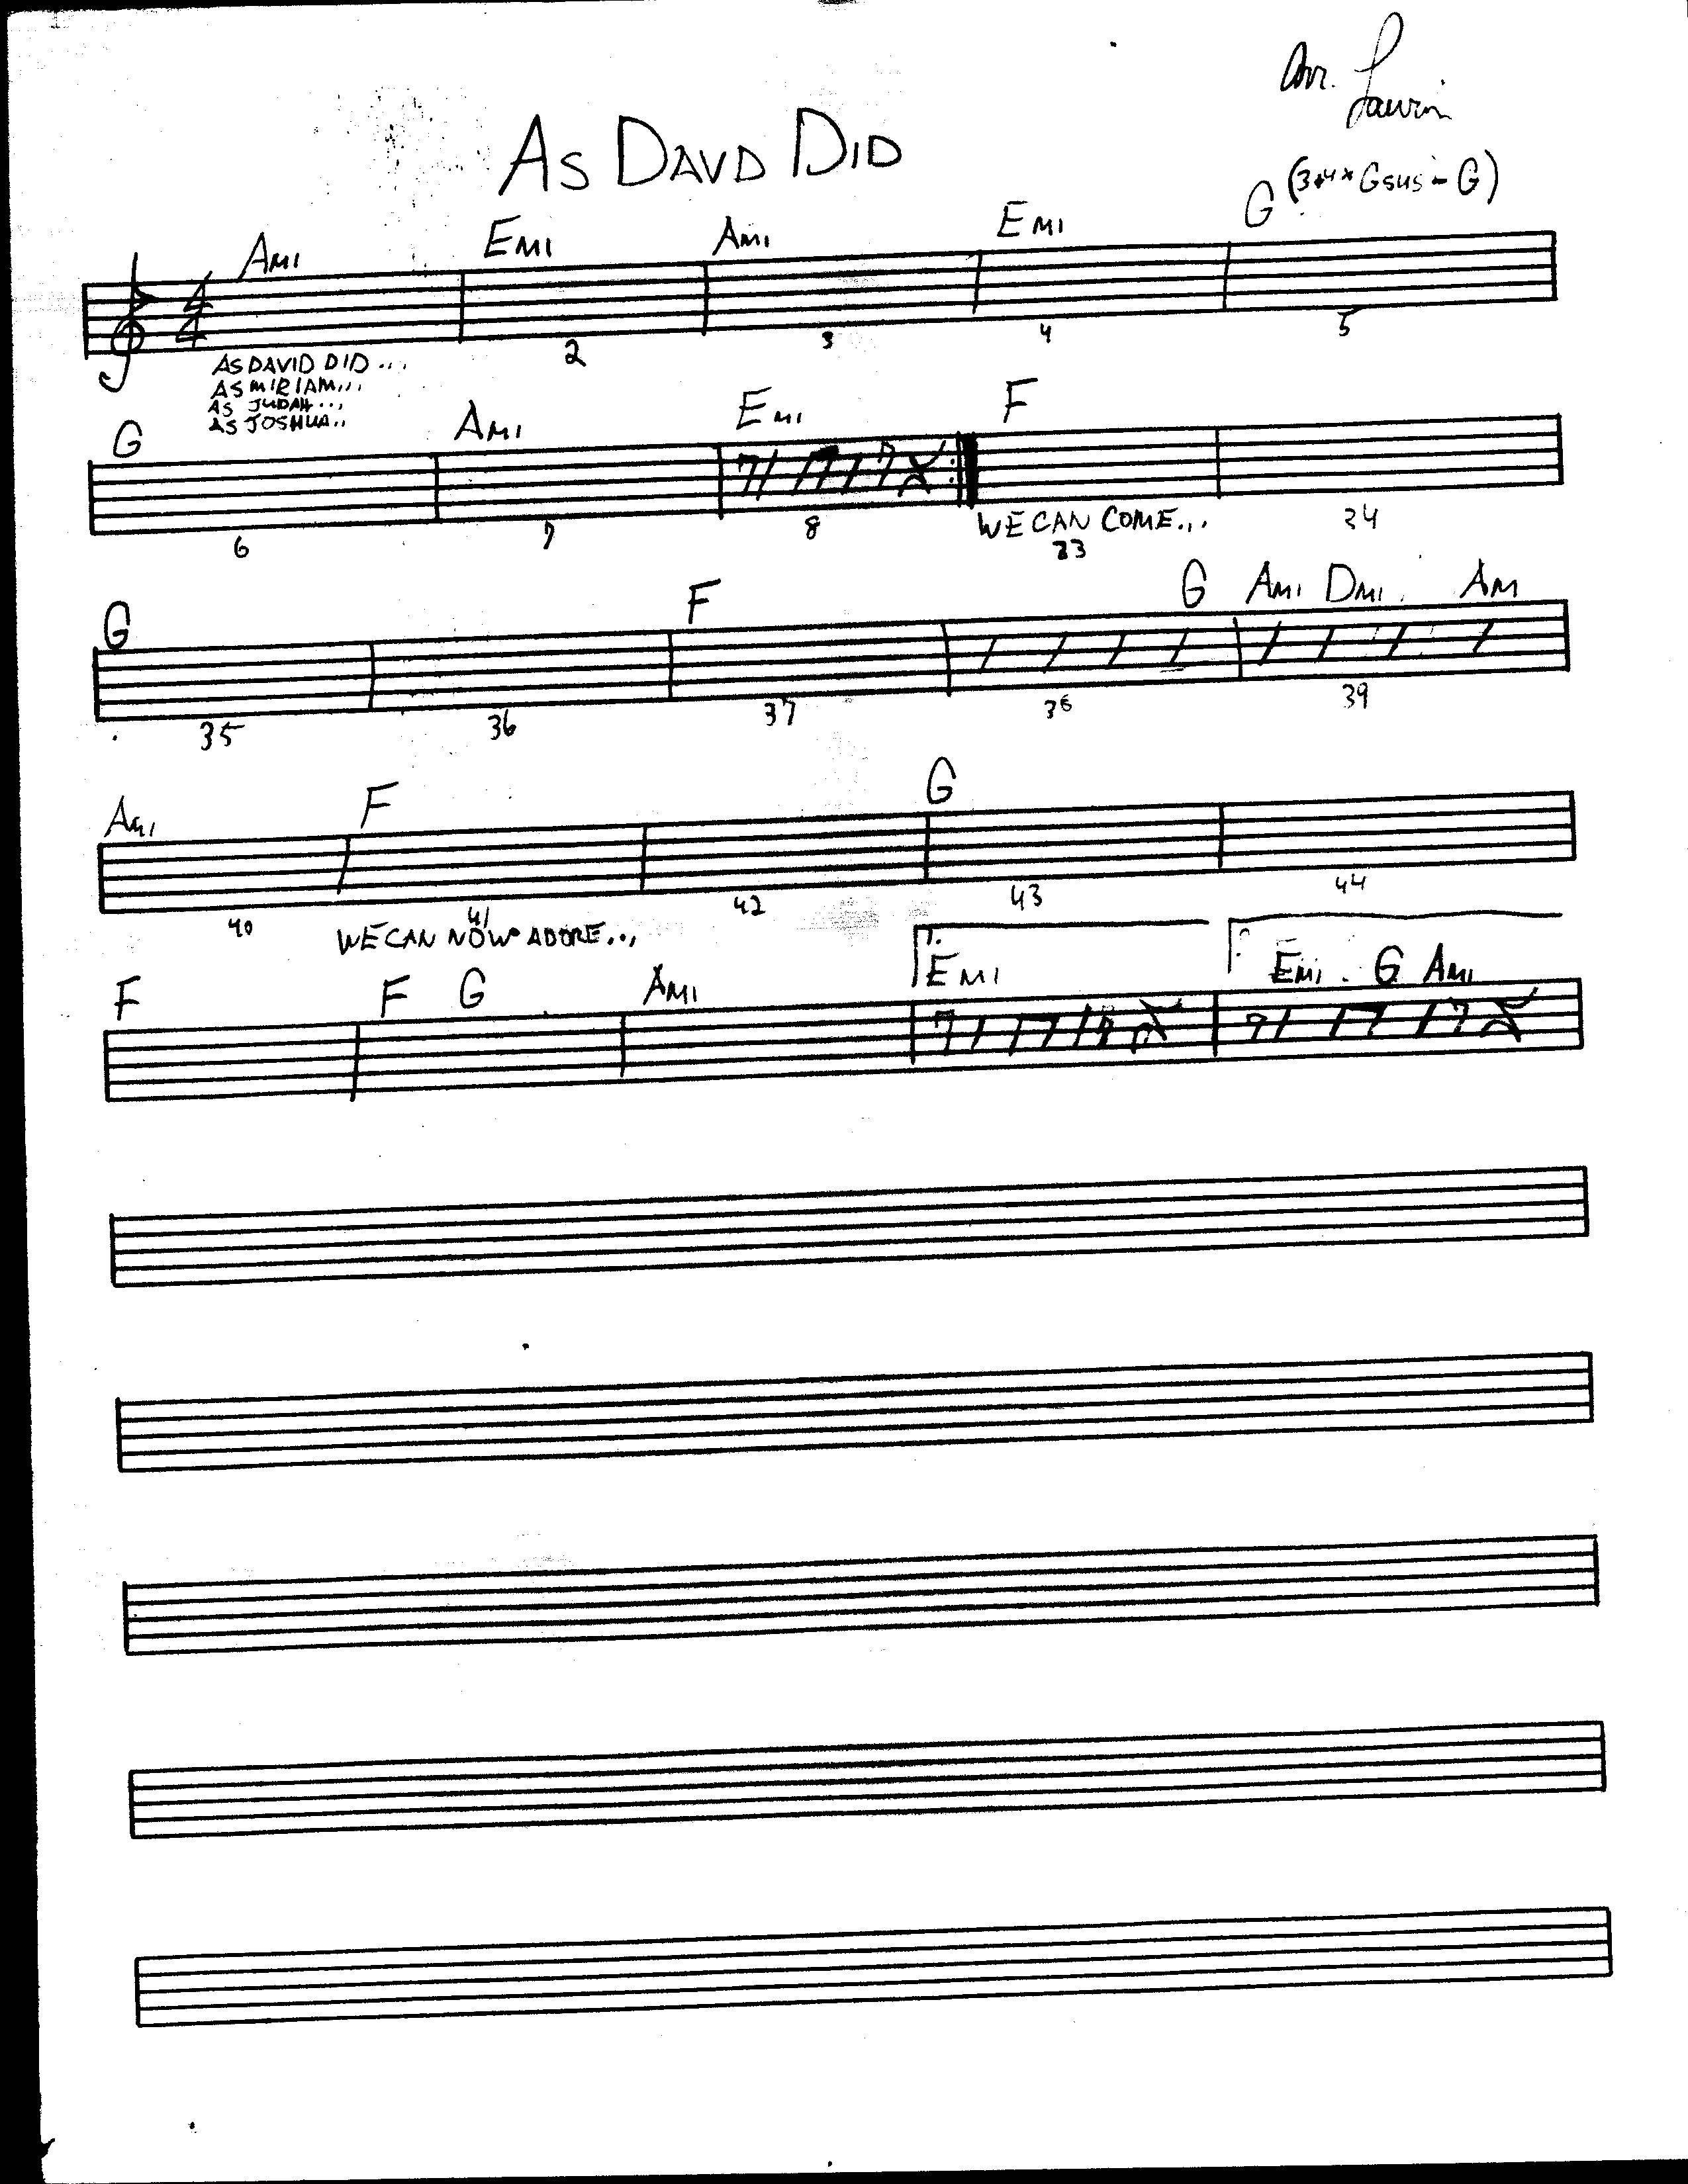 Arr. Laurin
AS DAVD DID
(3+4x Gsus - G)
AMI EMI AMI EMI G
4/4
2 3 4 5
AS DAVID DID...
AS MIRIAM...
AS JUDAH...
AS JOSHUA..
G AMI EMI F
WE CAN COME...
6 7 8 33 34
G F G AMI DMI AM
35 36 37 38 39
AMI F G
40 41 42 43 44
WE CAN NOW ADORE...
1.
F F G AMI EMI EMI G AMI